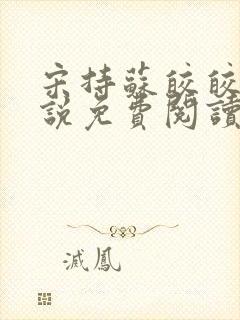 宋持蘇皎皎
說免費閱讀
滅鳳